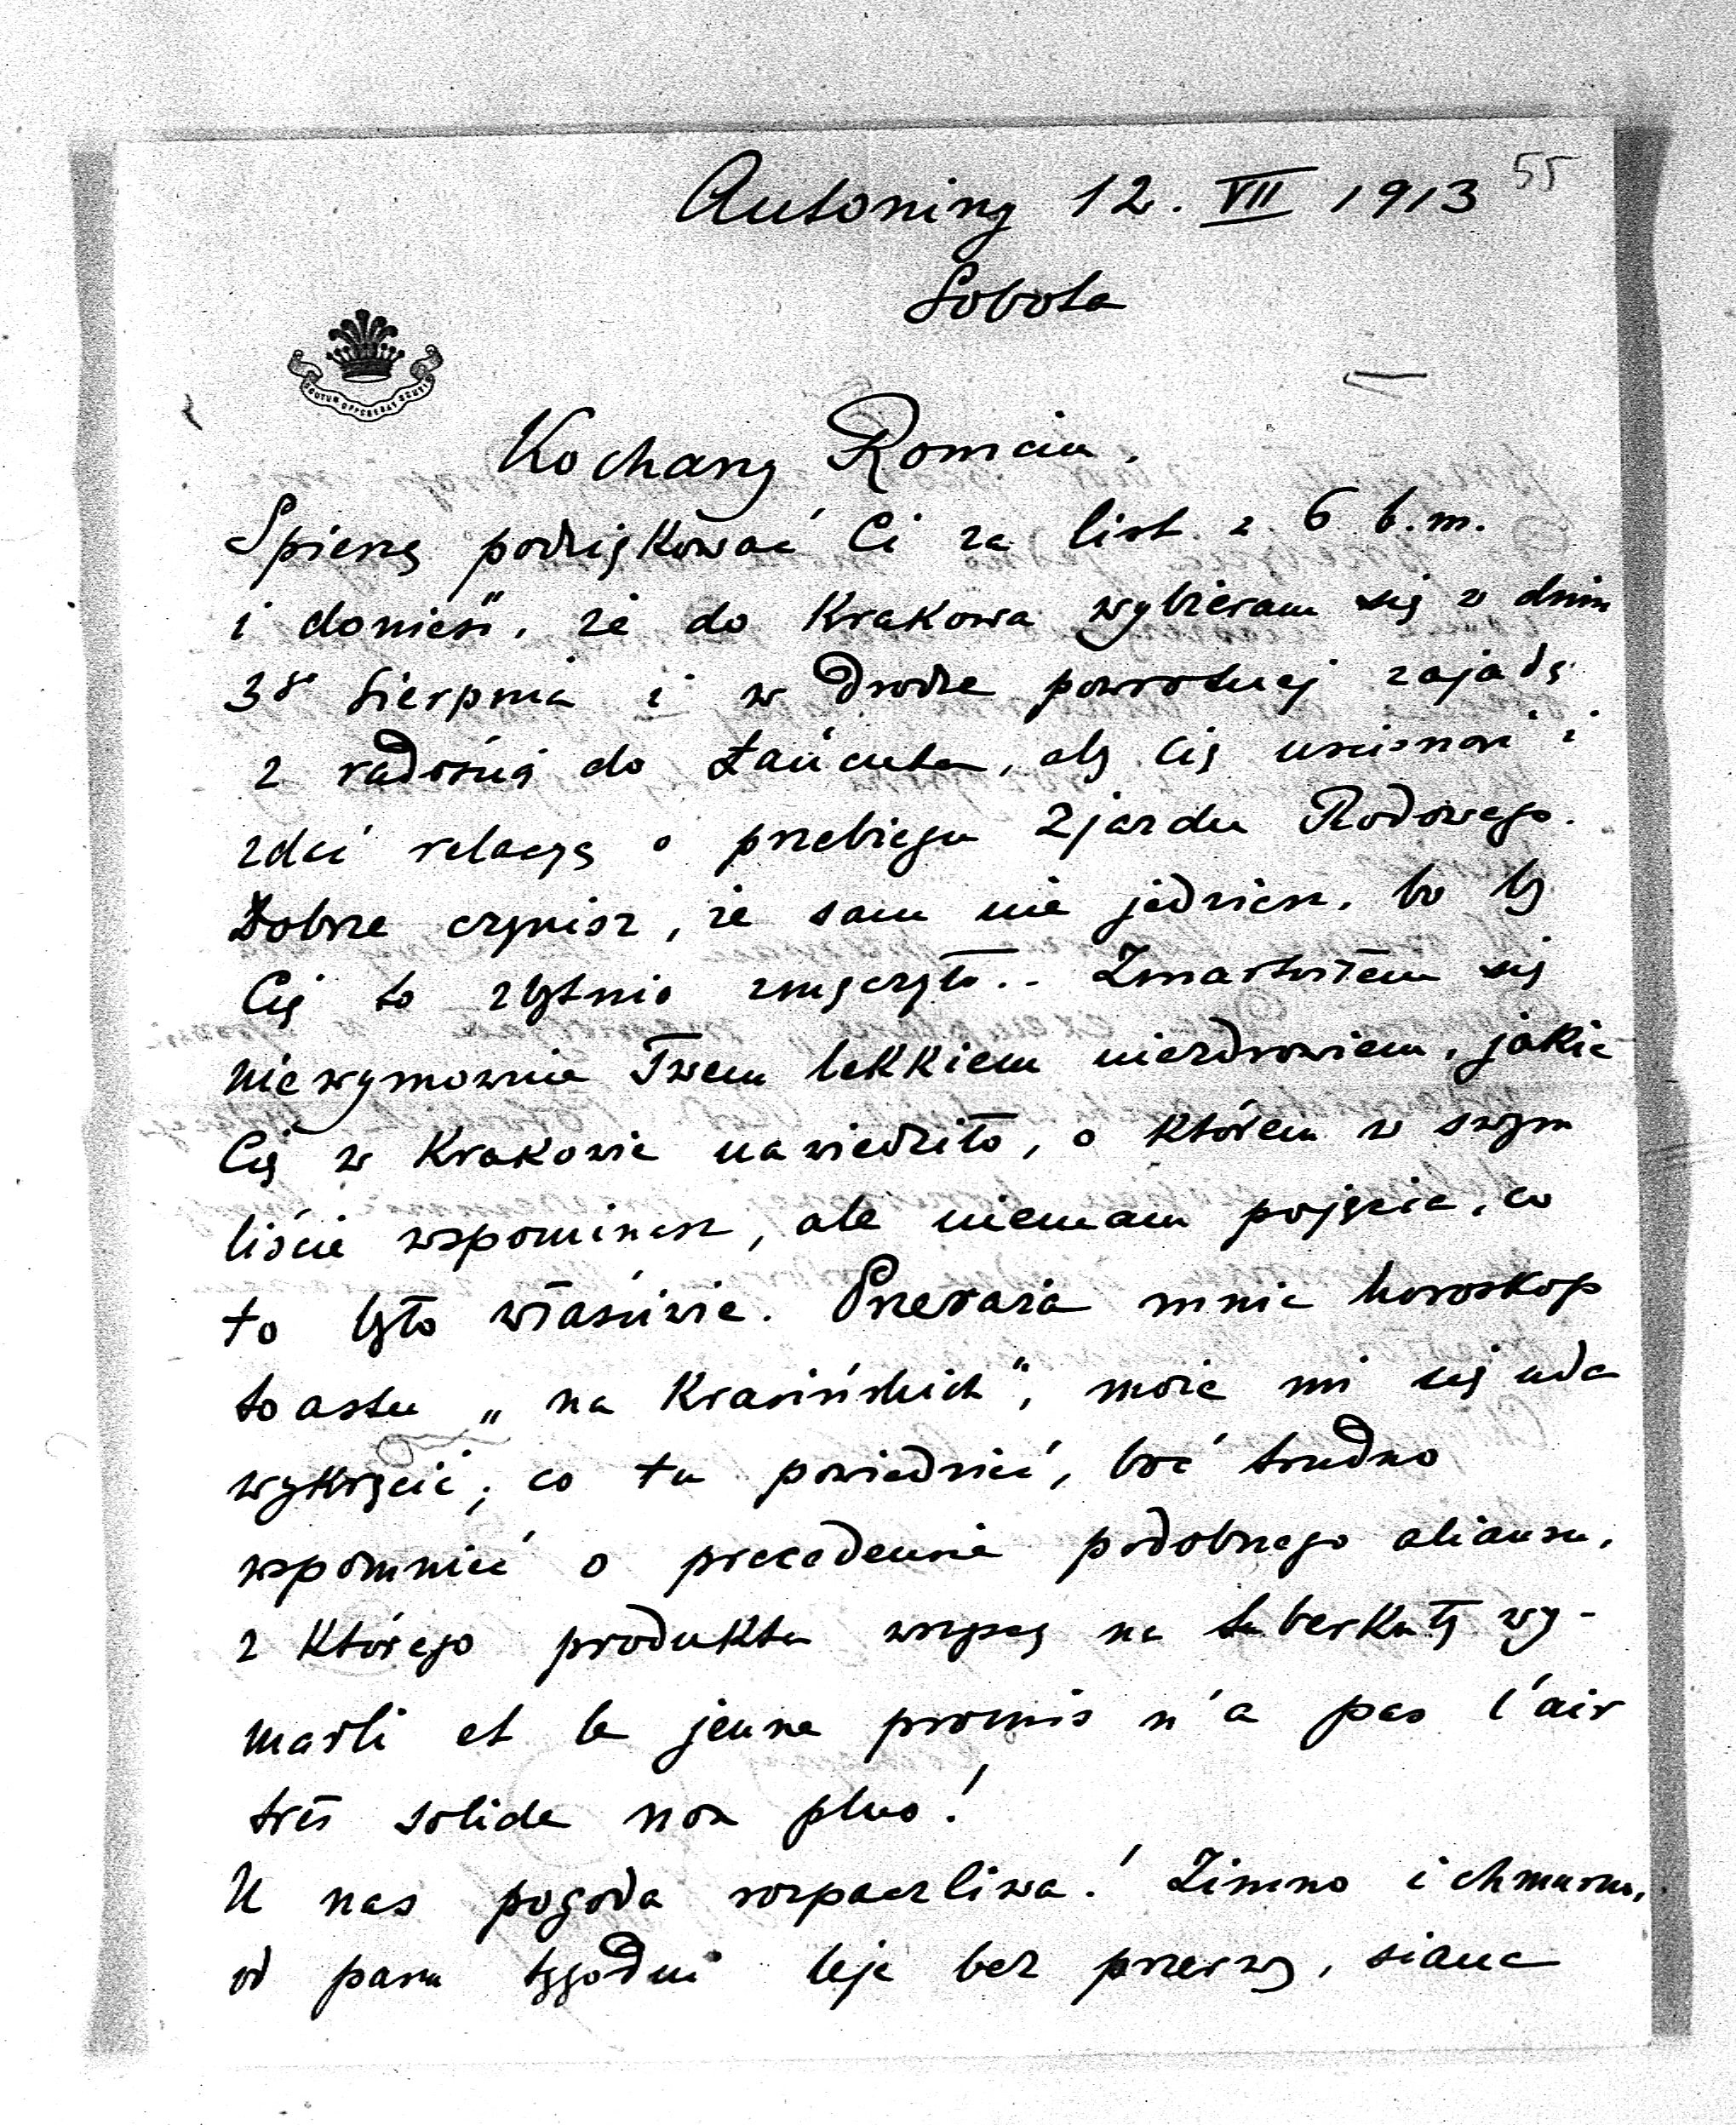 Antoniny 12. VII 1913
55
Sobota
SCUTUM OPPONEBAT SCUTIS
Kochany Romciu,
Spieszę podziękować Ci za list z 6 b.m.
i donieść, że do Krakowa wybieram się w dniu
3go Sierpnia i w drodze powrotnej zajadę
z radością do Łańcuta, aby Cię uścisnąć i
zdać relacyę o przebiegu Zjazdu Rodowego.
Dobrze czynisz, że sam nie jedziesz, bo by
Cię to zbytnio zmęczyło.. Zmartwiłem się
niewymownie Twem lekkiem niezdrowiem, jakie
Cię w Krakowie nawiedziło, o którem w swym
liście wspominasz, ale niemam pojęcia, co
to było właściwie. Przeraża mnie horoskop
toastu „na Krasińskich", może mi się uda
wykręcić; co tu powiedzieć, boć trudno
wspomnieć o precedensie podobnego aliansu,
z którego produkta wszyscy na tuberkuły wy-
marli et le jeune promis n'a pas l'air
très solide non plus!
U nas pogoda rozpaczliwa! Zimno i chmurno,
od paru tygodni leje bez przerwy, siana